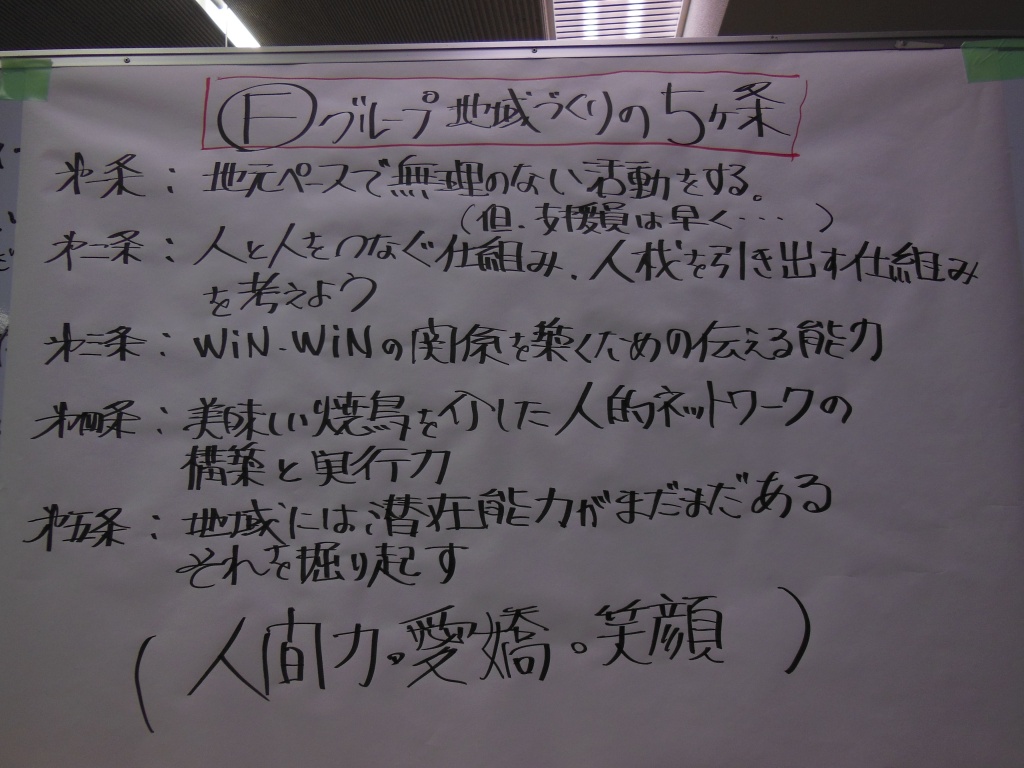 Ⓕグループ 地域づくりの5ヶ条
オ一条：地元ペースで無理のない活動をする。
（但、支援員は早く‥‥）
オ二条：人と人をつなぐ仕組み、人材を引き出す仕組み
を考えよう
オ三条：WiN-WiNの関係を築くための伝える能力
オ四条：美味しい焼鳥を介した人的ネットワークの
構築と実行力
オ五条：地域には潜在能力がまだまだある
それを掘り起す
（人間力。愛嬌。笑顔）